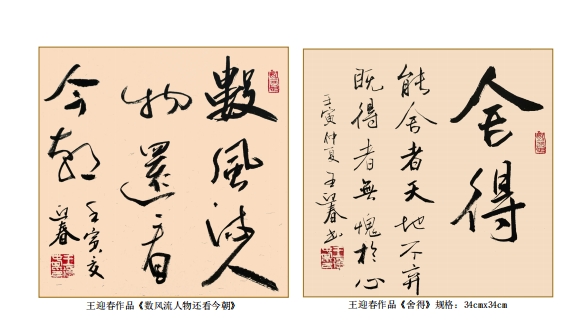 數風流人
物還看
今朝
壬寅
迎春
王迎春作品《数风流人物还看今朝》
舍得
能舍者天地不弃
既得者無愧於心
壬寅仲夏王迎春书
王迎春作品《舍得》规格：34cmx34cm